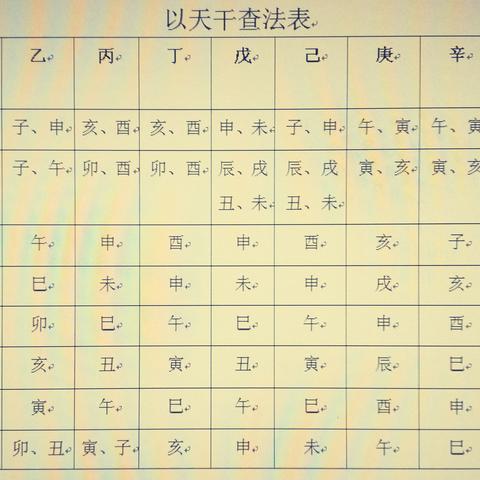 以天干查法表
乙 丙 丁 戊 己 庚 辛
子、申 亥、酉 亥、酉 申、未 子、申 午、寅 午、寅
子、午 卯、酉 卯、酉 辰、戌 辰、戌 寅、亥 寅、亥
丑、未 丑、未
午 申 酉 申 酉 亥 子
巳 未 申 未 申 戌 亥
卯 巳 午 巳 午 申 酉
亥 丑 寅 丑 寅 辰 巳
寅 午 巳 午 巳 酉 申
卯、丑 寅、子 亥 申 未 午 巳